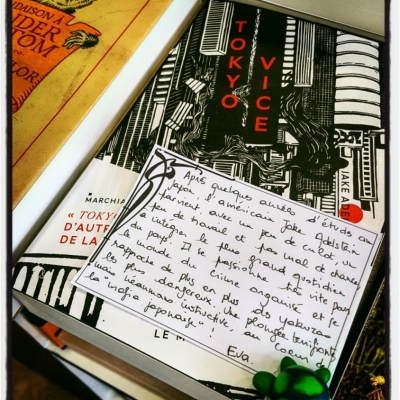 DAISON À L
IDER
TOM
LOR
TOKYO
VICE
JAKE ADE
MARCHIA
« TOKYO
D'AUTR
DE LA
Après quelques années d'étude au
Japon l'américain Jake Adelstein
parvient, avec un peu de culot, un
peu de travail et pas mal de chance
à intégrer le plus grand quotidien
du pays. Il se passionne très vite par
le monde du crime organisé et se
rapproche de plus en plus des yakuza
les plus dangereux. Une plongée terrifiante
mais néanmoins instructive au coeur de
la "mafia japonaise" !
Eva.
LE M